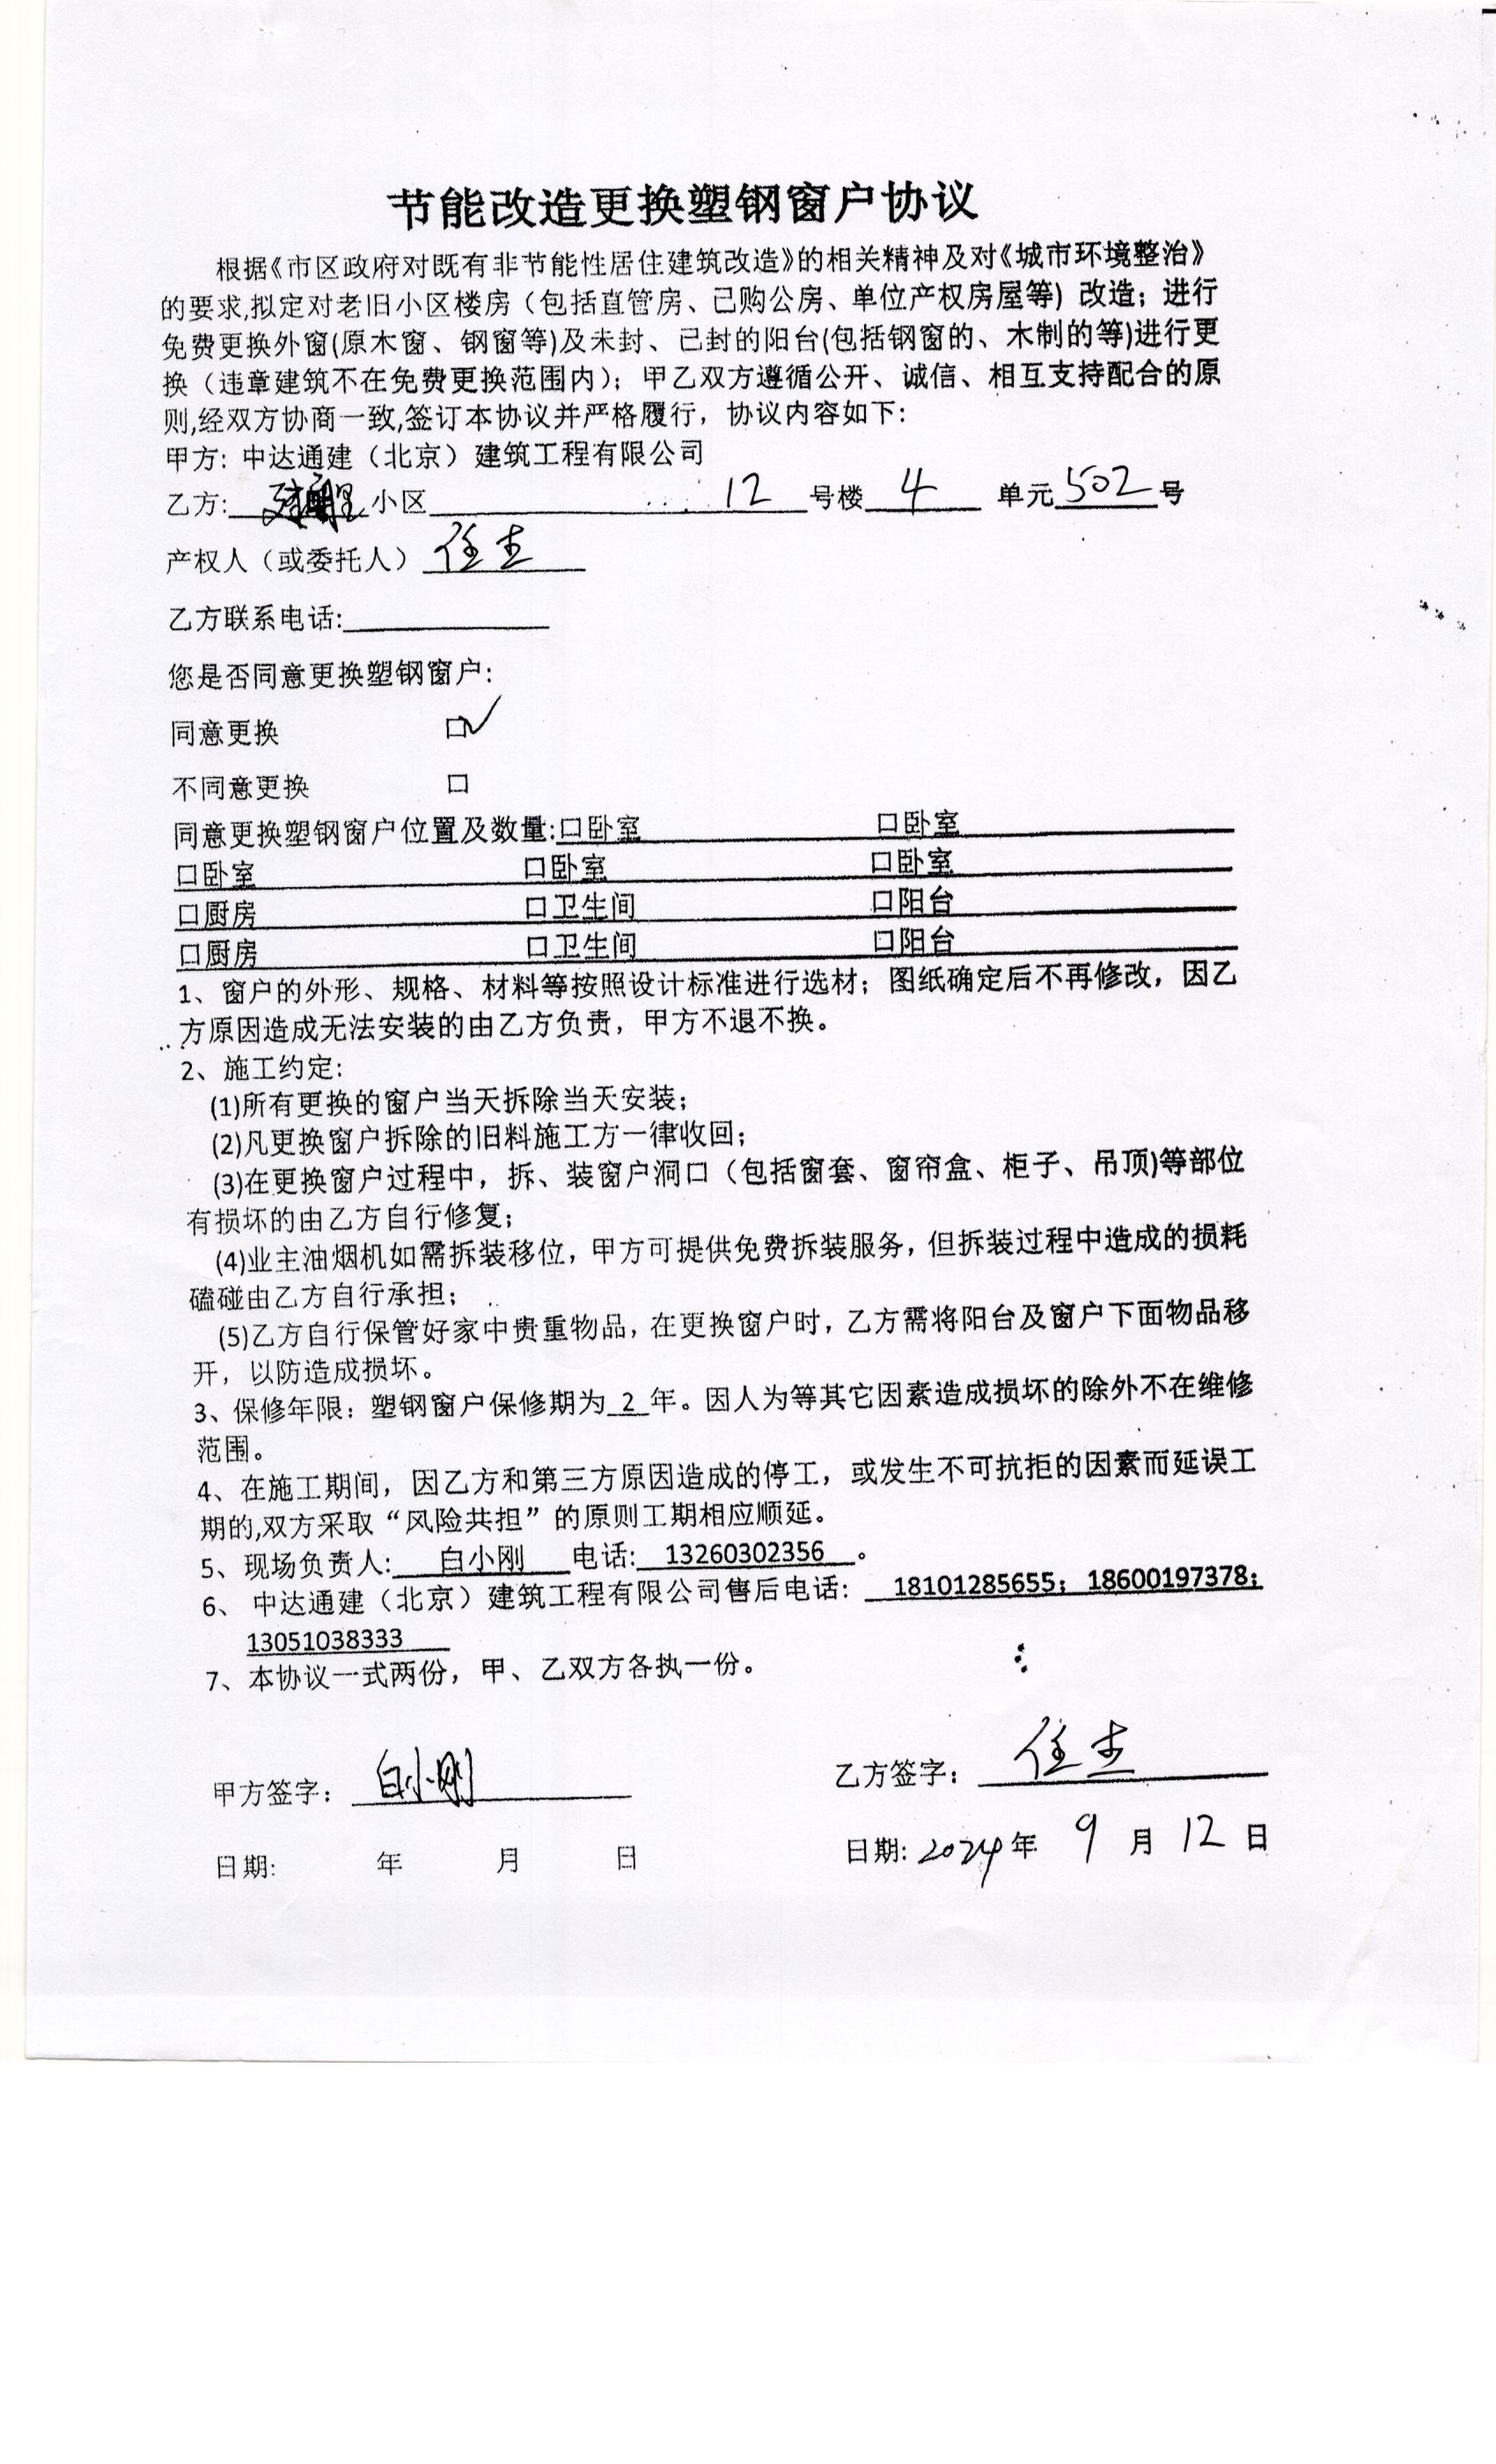 节能改造更换塑钢窗户协议
根据《市区政府对既有非节能性居住建筑改造》的相关精神及对《城市环境整治》
的要求,拟定对老旧小区楼房（包括直管房、已购公房、单位产权房屋等）改造；进行
免费更换外窗(原木窗、钢窗等)及未封、已封的阳台(包括钢窗的、木制的等)进行更
换（违章建筑不在免费更换范围内)；甲乙双方遵循公开、诚信、相互支持配合的原
则,经双方协商一致,签订本协议并严格履行，协议内容如下：
甲方：中达通建（北京）建筑工程有限公司
乙方: 小区 12 号楼 4 单元 502 号
产权人（或委托人） 任杰
乙方联系电话:
您是否同意更换塑钢窗户：
同意更换 □✓
不同意更换 □
同意更换塑钢窗户位置及数量:□卧室 □卧室
□卧室 □卧室 □卧室
□厨房 □卫生间 □阳台
□厨房 □卫生间 □阳台
1、窗户的外形、规格、材料等按照设计标准进行选材；图纸确定后不再修改，因乙
方原因造成无法安装的由乙方负责，甲方不退不换。
2、施工约定：
(1)所有更换的窗户当天拆除当天安装；
(2)凡更换窗户拆除的旧料施工方一律收回；
(3)在更换窗户过程中，拆、装窗户洞口（包括窗套、窗帘盒、柜子、吊顶)等部位
有损坏的由乙方自行修复；
(4)业主油烟机如需拆装移位，甲方可提供免费拆装服务，但拆装过程中造成的损耗
磕碰由乙方自行承担；
(5)乙方自行保管好家中贵重物品，在更换窗户时，乙方需将阳台及窗户下面物品移
开，以防造成损坏。
3、保修年限：塑钢窗户保修期为 2 年。因人为等其它因素造成损坏的除外不在维修
范围。
4、在施工期间，因乙方和第三方原因造成的停工，或发生不可抗拒的因素而延误工
期的,双方采取“风险共担”的原则工期相应顺延。
5、现场负责人: 白小刚 电话: 13260302356 。
6、中达通建（北京）建筑工程有限公司售后电话： 18101285655；18600197378；
13051038333
7、本协议一式两份，甲、乙双方各执一份。
甲方签字： 白小刚 乙方签字： 任杰
日期: 年 月 日 日期: 2024年 9 月 12 日